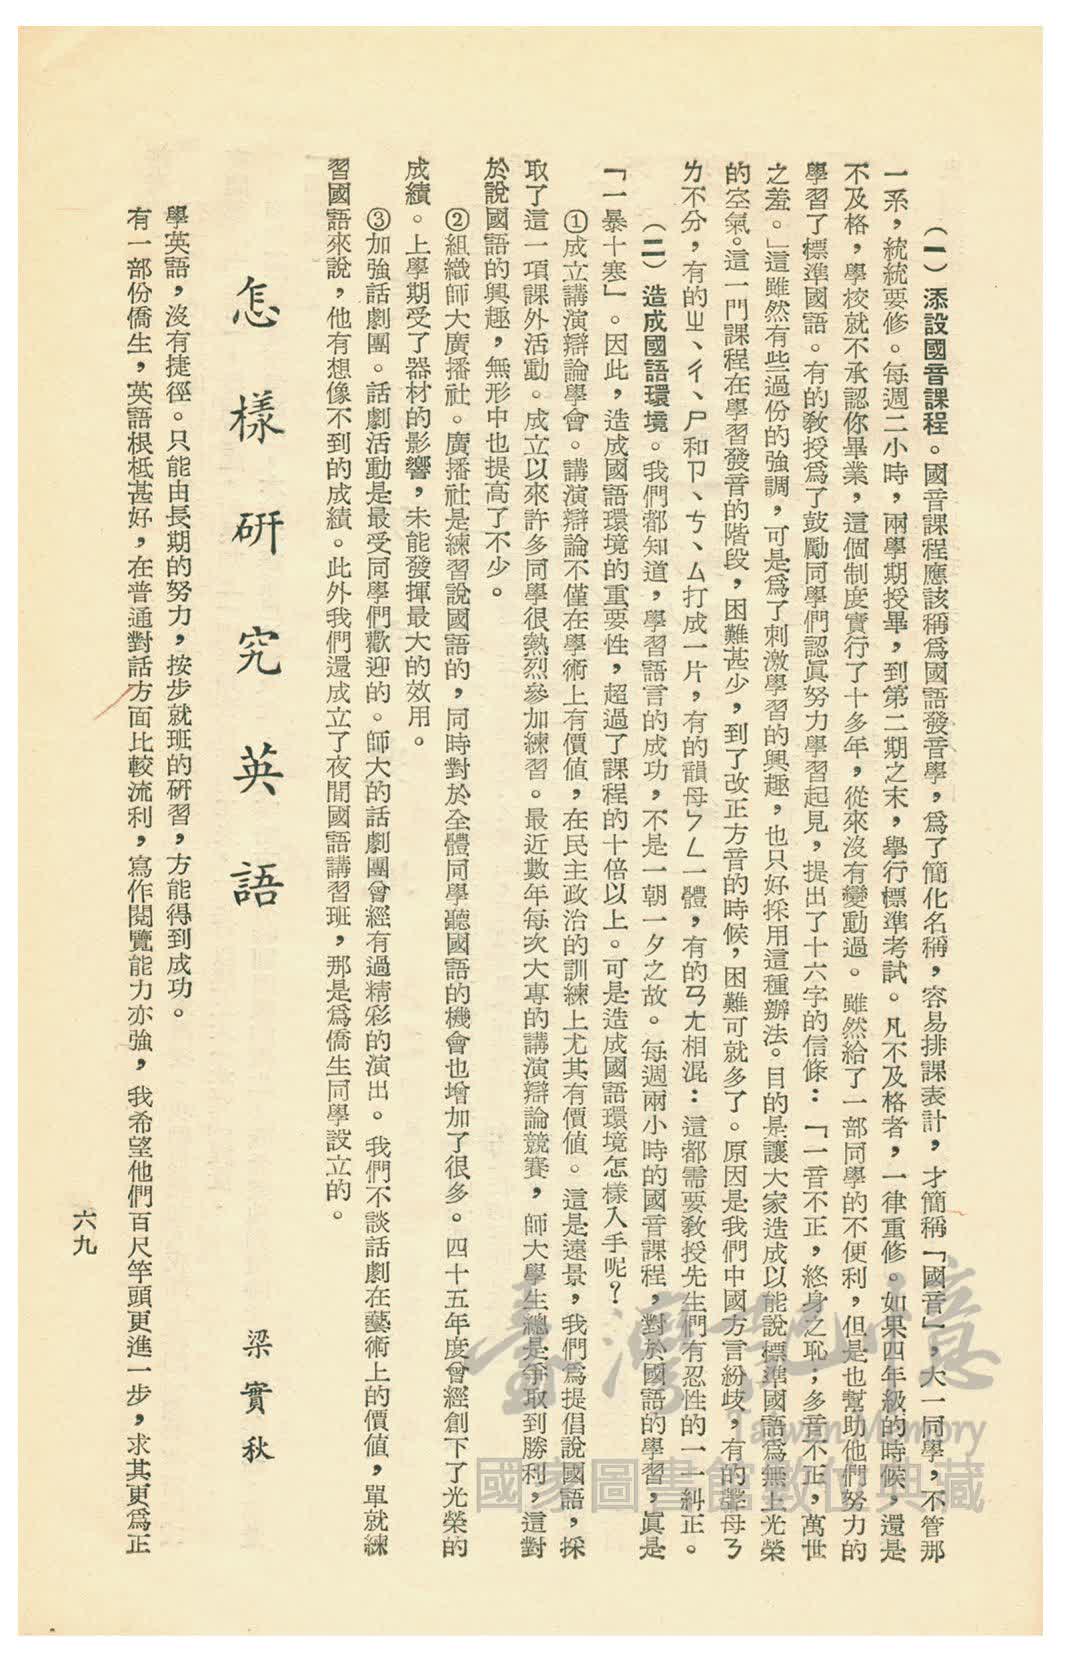 （一）添設國音課程。國音課程應該稱爲國語發音學，爲了簡化名稱，容易排課表計，才簡稱「國音」，大一同學，不管那
一系，統統要修。每週二小時，兩學期授畢，到第二期之末，舉行標準考試。凡不及格者，一律重修。如果四年級的時候，還是
不及格，學校就不承認你畢業，這個制度實行了十多年，從來沒有變動過。雖然給了一部同學的不便利，但是也幫助他們努力的
學習了標準國語。有的教授爲了鼓勵同學們認眞努力學習起見，提出了十六字的信條：「一音不正，終身之恥；多音不正，萬世
之羞。」這雖然有些過份的強調，可是爲了刺激學習的興趣，也只好採用這種辦法。目的是讓大家造成以能說標準國語爲無上光榮
的空氣。這一門課程在學習發音的階段，困難甚少，到了改正方音的時候，困難可就多了。原因是我們中國方言紛歧，有的聲母ㄋ
ㄌ不分，有的ㄓ、ㄔ、ㄕ和ㄗ、ㄘ、ㄙ打成一片，有的韻母ㄣㄥ一體，有的ㄢㄤ相混：這都需要教授先生們有忍性的一一糾正。
（二）造成國語環境。我們都知道，學習語言的成功，不是一朝一夕之故。每週兩小時的國音課程，對於國語的學習，眞是
「一暴十寒」。因此，造成國語環境的重要性，超過了課程的十倍以上。可是造成國語環境怎樣入手呢？
①成立講演辯論學會。講演辯論不僅在學術上有價值，在民主政治的訓練上尤其有價值。這是遠景，我們爲提倡說國語，採
取了這一項課外活動。成立以來許多同學很熱烈參加練習。最近數年每次大專的講演辯論競賽，師大學生總是爭取到勝利，這對
於說國語的興趣，無形中也提高了不少。
②組織師大廣播社。廣播社是練習說國語的，同時對於全體同學聽國語的機會也增加了很多。四十五年度曾經創下了光榮的
成績。上學期受了器材的影響，未能發揮最大的效用。
③加強話劇團。話劇活動是最受同學們歡迎的。師大的話劇團曾經有過精彩的演出。我們不談話劇在藝術上的價值，單就練
習國語來說，他有想像不到的成績。此外我們還成立了夜間國語講習班，那是爲僑生同學設立的。
怎樣研究英語
梁實秋
學英語，沒有捷徑。只能由長期的努力，按步就班的研習，方能得到成功。
有一部份僑生，英語根柢甚好，在普通對話方面比較流利，寫作閱覽能力亦強，我希望他們百尺竿頭更進一步，求其更爲正
六九
臺灣記憶
Taiwan Memory
國家圖書館數位典藏